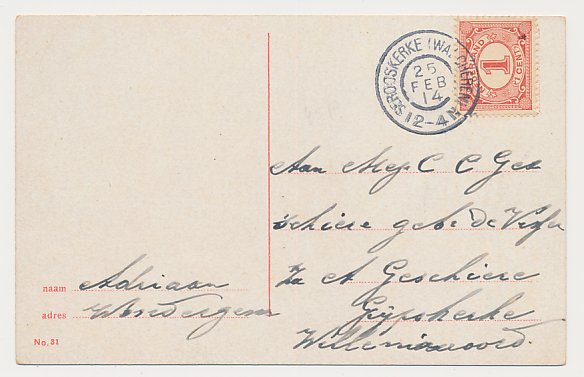 SEROOSKERKE (WALCHEREN)
25
FEB
14
12-4N
1
CENT
Aan Mej C C Ges
schiere geb. De Visser
Za A Geschiere
Gapskerke
naam Adriaan
adres
No. 31